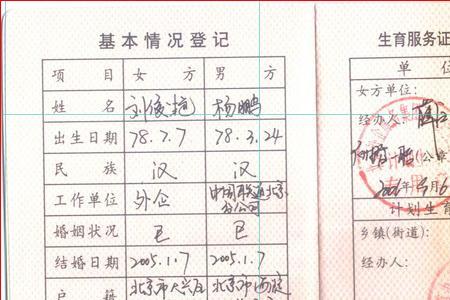 基本情况登记
项目 女方 男方
姓名 杨鹏
出生日期 78.7.7 78.3.24
民族 汉 汉
工作单位 外企 中国联通北京分公司
婚姻状况 已 已
结婚日期 2005.1.7 2005.1.7
户籍 北京市大兴 北京市西
生育服务证
单位
女方单位:
经办人:
(公章
年 月 6
计划生育
乡镇(街道):
经办人: